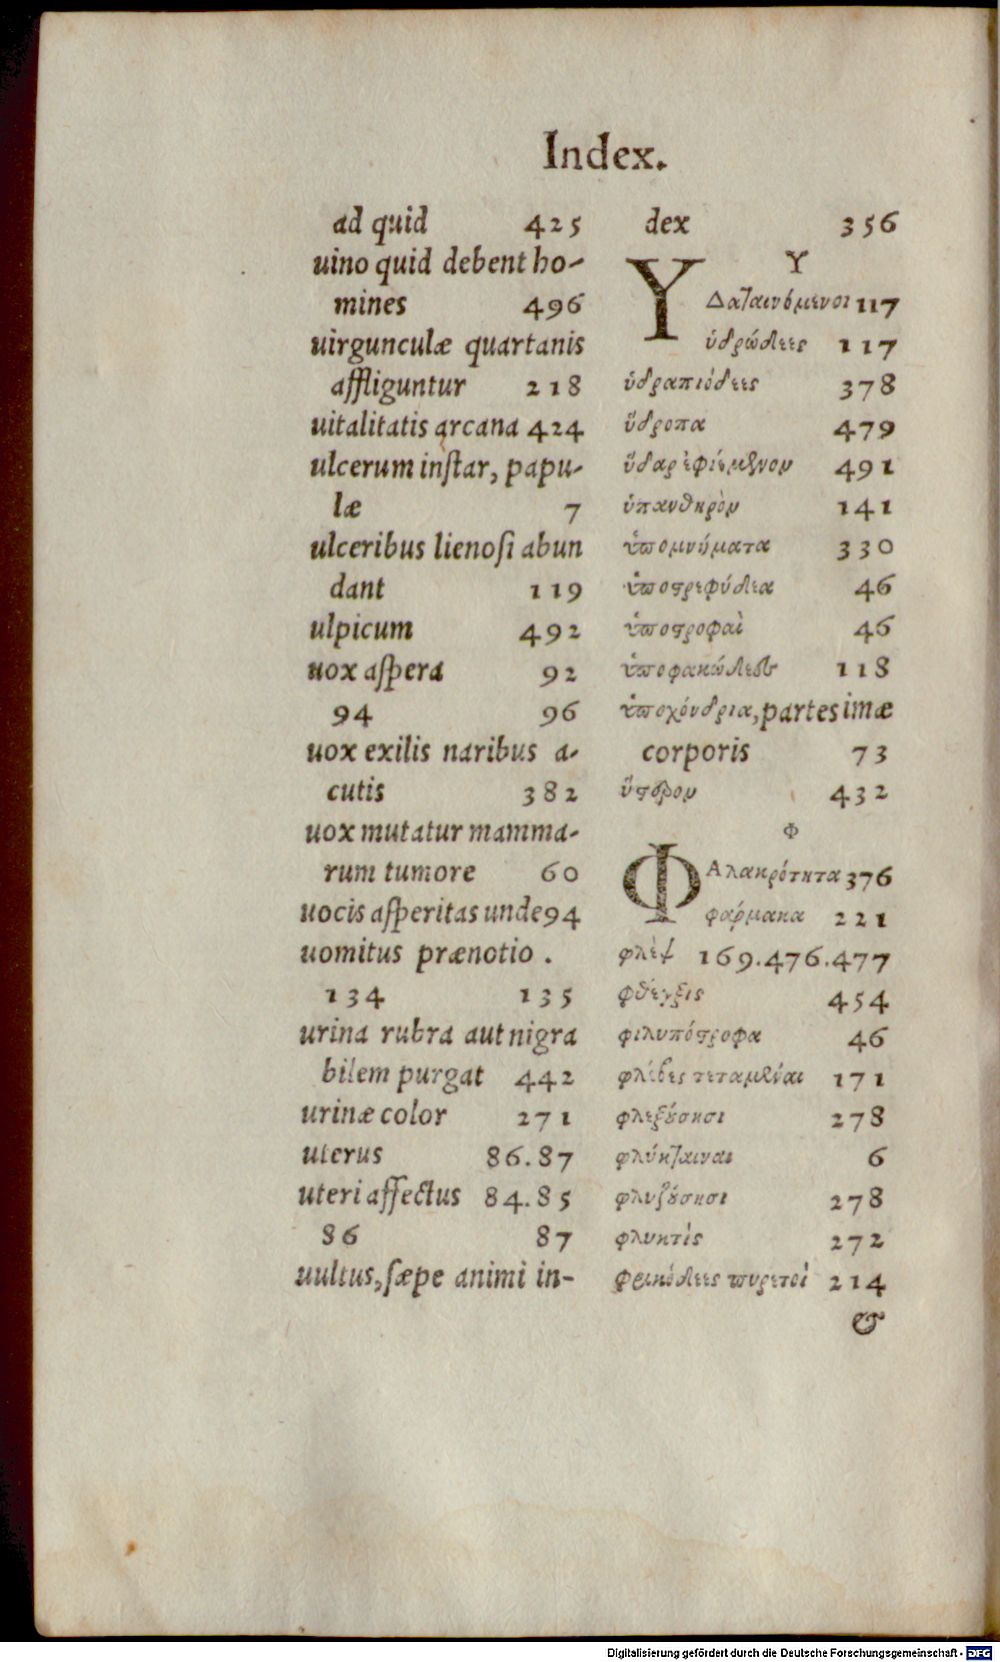 Index.
ad quid 425
uino quid debent ho-
mines 496
uirgunculæ quartanis
affliguntur 218
uitalitatis arcana 424
ulcerum inſtar, papu-
læ 7
ulceribus lienoſi abun
dant 119
ulpicum 492
uox aſpera 92
94 96
uox exilis naribus a-
cutis 382
uox mutatur mamma-
rum tumore 60
uocis aſperitas unde 94
uomitus prænotio .
134 135
urina rubra aut nigra
bilem purgat 442
urinæ color 271
uterus 86.87
uteri affectus 84.85
86 87
uultus, ſæpe animi in-
dex 356
Υ
ΥΔαταινόμενοι 117
ὑδρώδεες 117
ὑδραπιώδεες 378
ὕδροπα 479
ὕδαρ ἐφιέμενον 491
ὑπανθηρὸν 141
ὑπομνήματα 330
ὑποστρεφώδεα 46
ὑποστροφαὶ 46
ὑποφακώδεες 118
ὑποχόνδρια, partes imæ
corporis 73
ὕστερον 432
Φ
ΦΑλακρότητα 376
φαρμακα 221
φλὲψ 169.476.477
φθέγξις 454
φιλυπόστροφα 46
φλέβες τεταμέναι 171
φλεξούσησι 278
φλύκταιναι 6
φλυζούσησι 278
φλυκτὶς 272
φρικώδεες πυρετοὶ 214
&
Digitalisierung gefördert durch die Deutsche Forschungsgemeinschaft - DFG